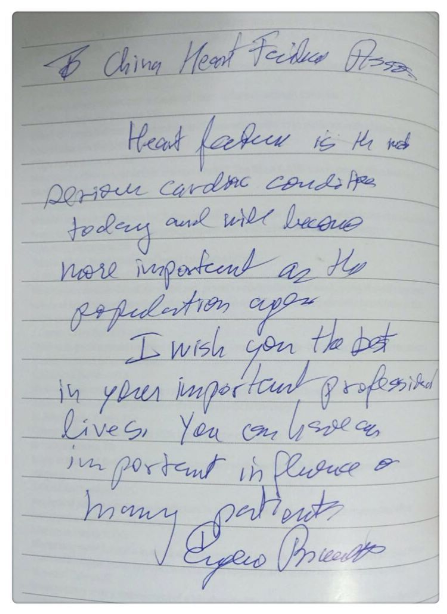 To China Heart Failure Assoc
Heart failure is the most
serious cardiac condition
today and will become
more important as the
population ages
I wish you the best
in your important professional
lives. You can have an
important influence on
many patients
Eugene Braunwald